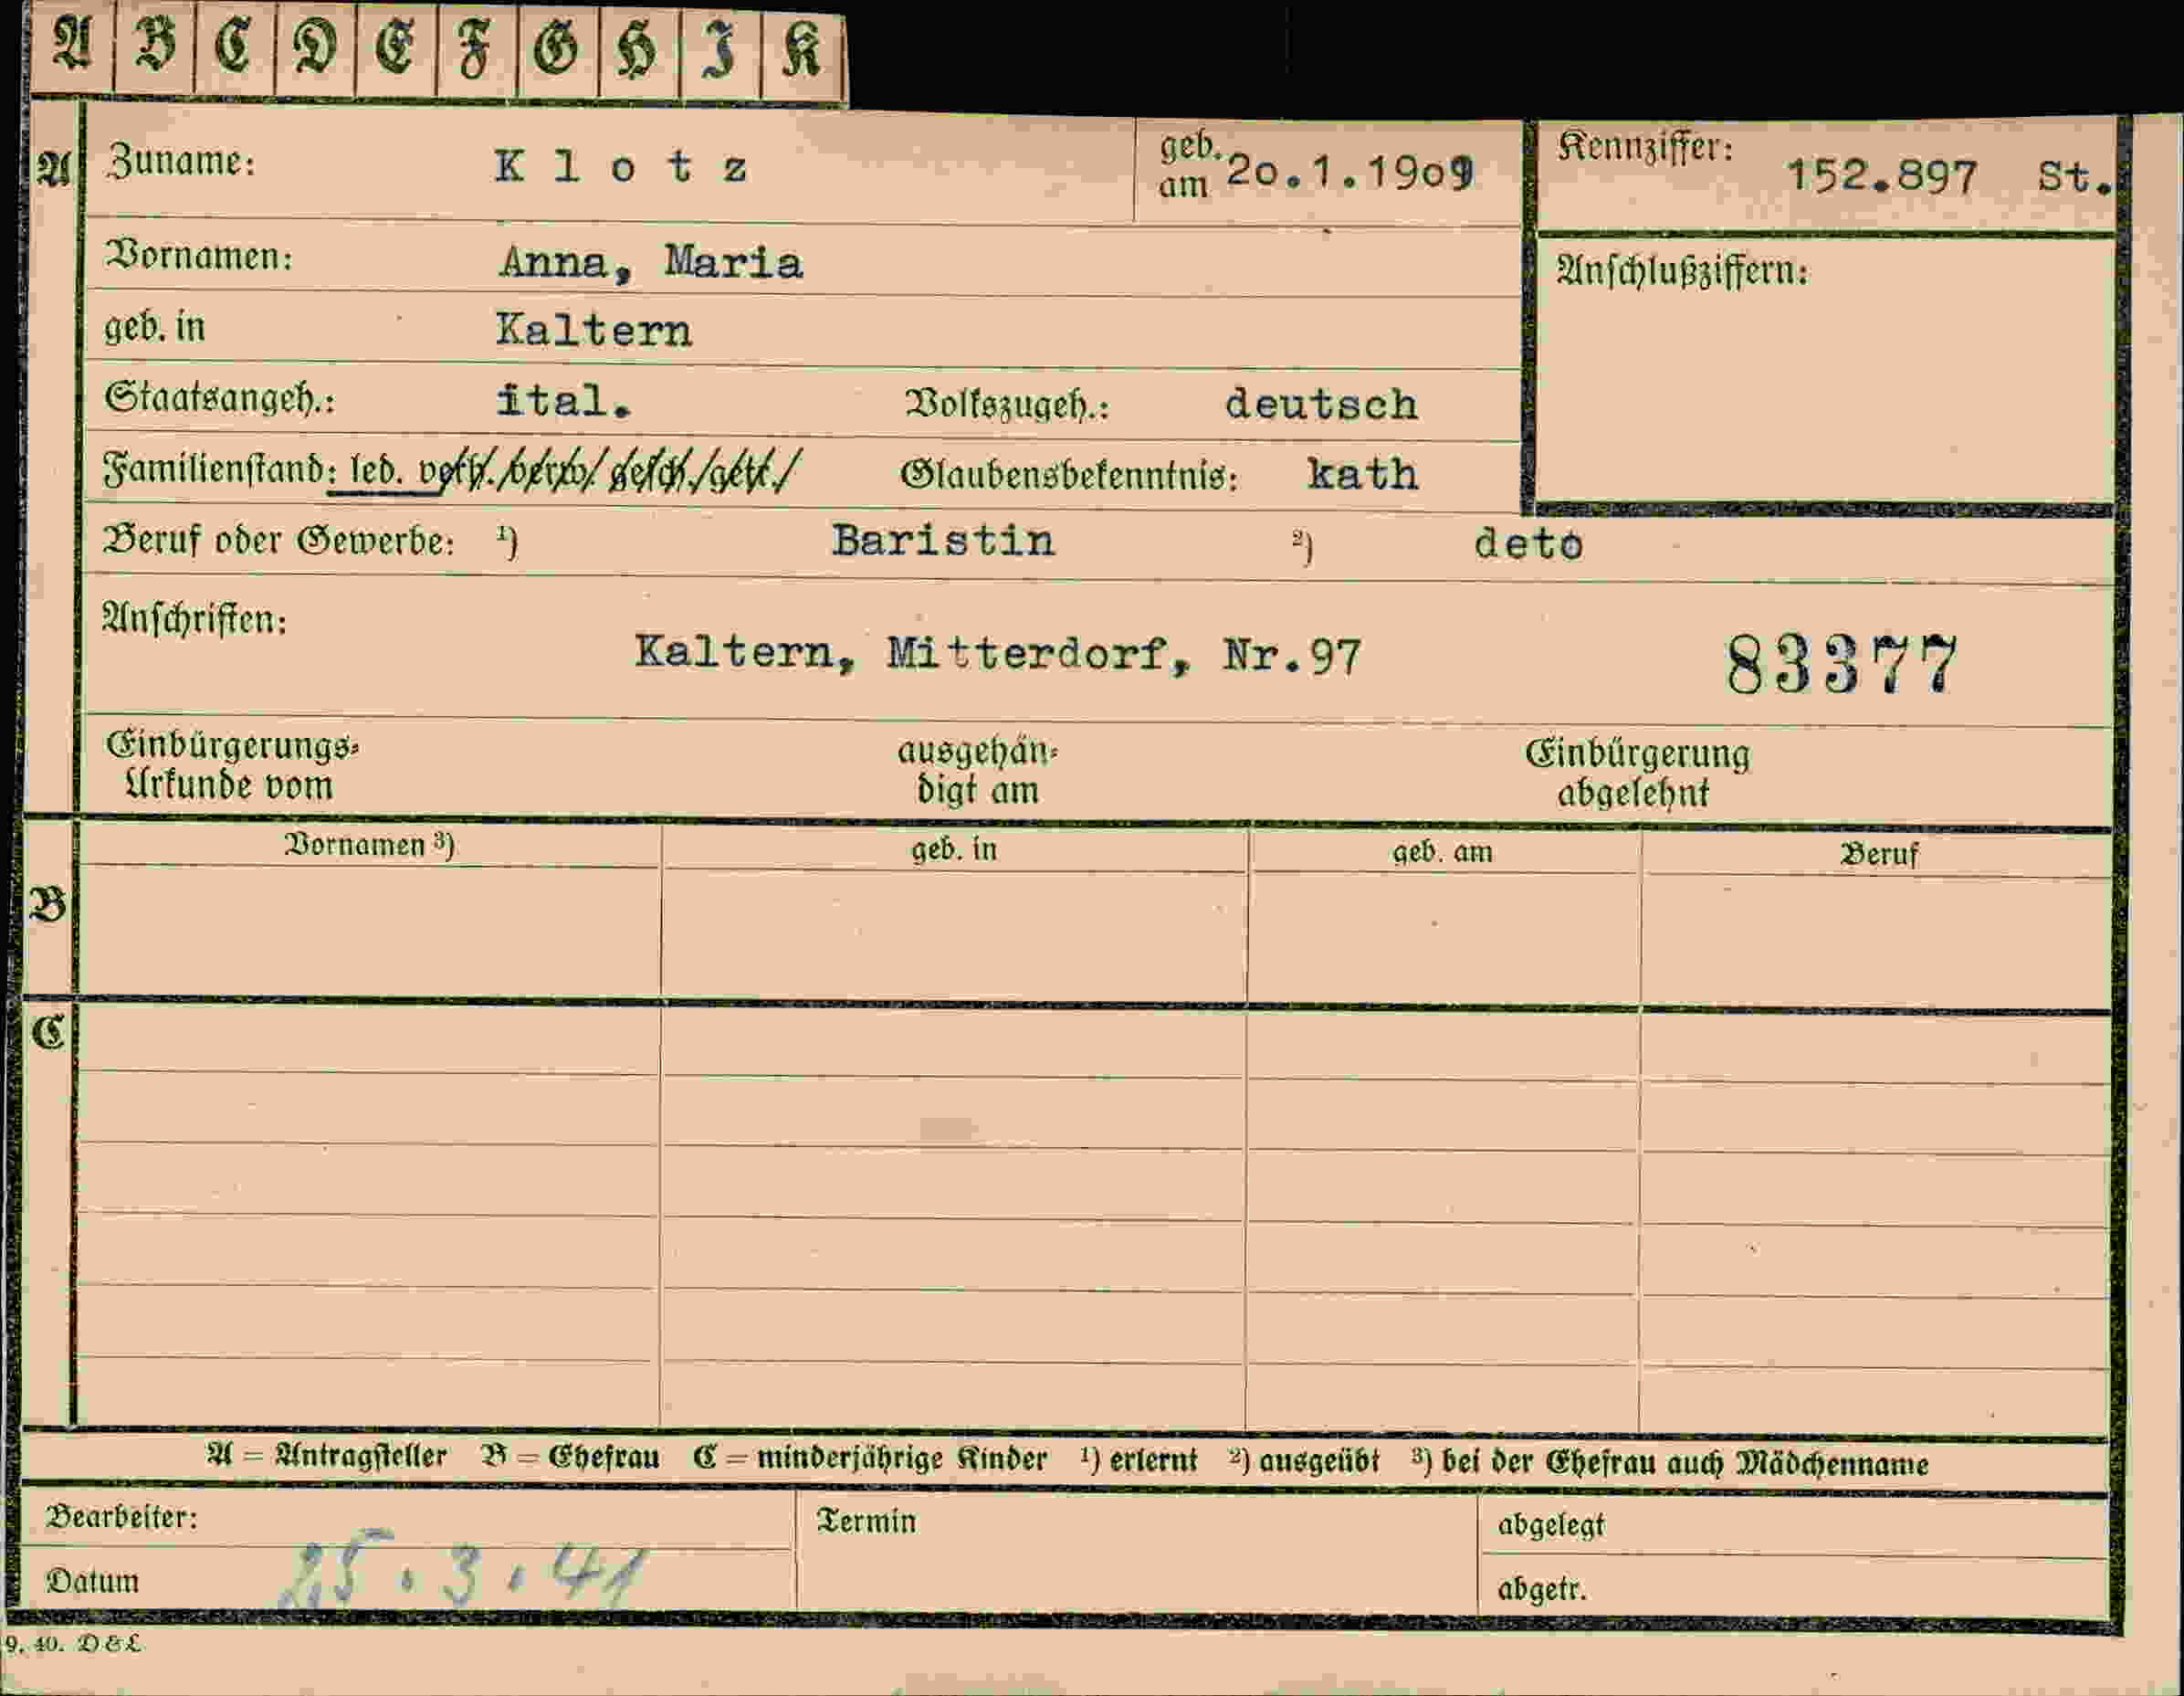 A B C D E F G H I K
A Zuname: Klotz geb. am 20.1.1909 Kennziffer: 152.897 St.
Vornamen: Anna, Maria Anschlußziffern:
geb. in Kaltern
Staatsangeh.: ital. Volkszugeh.: deutsch
Familienstand: led. verh./verw/ gesch./getr./ Glaubensbekenntnis: kath
Beruf oder Gewerbe: ¹) Baristin ²) deto
Anschriften: Kaltern, Mitterdorf, Nr.97 83377
Einbürgerungs- ausgehän- Einbürgerung
Urkunde vom digt am abgelehnt
Vornamen ³) geb. in geb. am Beruf
B
C
A = Antragsteller B = Ehefrau C = minderjährige Kinder ¹) erlernt ²) ausgeübt ³) bei der Ehefrau auch Mädchenname
Bearbeiter: Termin abgelegt
Datum 25.3.41 abgetr.
9. 40. D & L